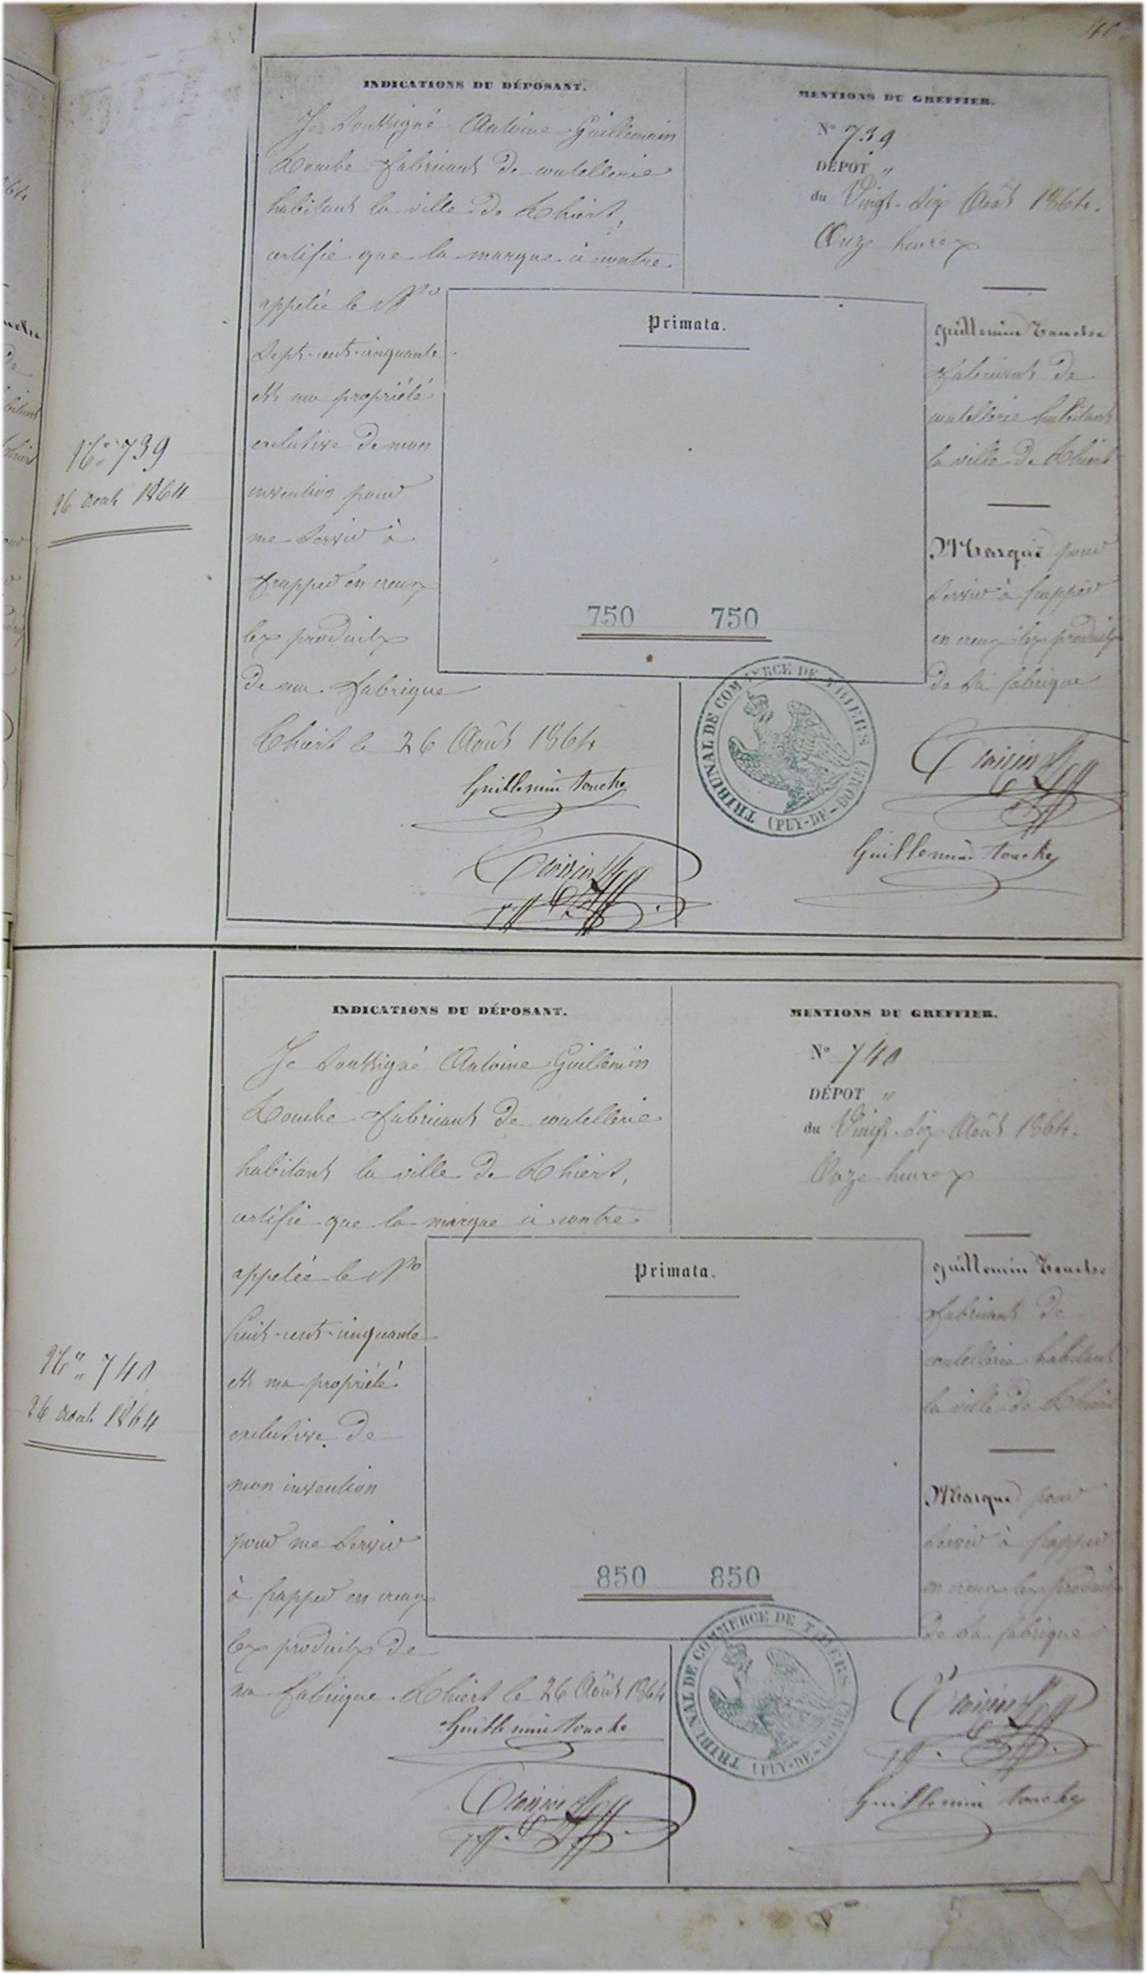 INDICATIONS DU DÉPOSANT.
Je Soussigné Antoine Guillemin
Touche fabricant de coutellerie
habitant la ville de Thiers,
certifie que la marque ci contre
appelée le No
Sept-cent-cinquante
est ma propriété
exclusive de mon
invention pour
me servir à
frapper en creux
les produits
de ma fabrique
Thiers le 26 Août 1864
Guillemin touche
MENTIONS DU GREFFIER.
No 739
DÉPOT "
du Vingt-six Août 1864.
Onze heures
Guillemin Touche
fabricant de
coutellerie habitant
la ville de Thiers
Marque pour
servir à frapper
en creux les produits
de sa fabrique
Guillemin touche
Primata.
750 750
TRIBUNAL DE COMMERCE DE THIERS
(PUY-DE-DOME)
No 739
26 août 1864
INDICATIONS DU DÉPOSANT.
Je Soussigné Antoine Guillemin
Touche fabricant de coutellerie
habitant la ville de Thiers,
certifie que la marque ci contre
appelée le No
huit-cent-cinquante
est ma propriété
exclusive de
mon invention
pour me servir
à frapper en creux
les produits de
ma fabrique. Thiers le 26 Août 1864
Guillemin touche
MENTIONS DU GREFFIER.
No 740
DÉPOT "
du Vingt-six Août 1864.
Onze heures
Guillemin Touche
fabricant de
coutellerie habitant
la ville de Thiers
Marque pour
servir à frapper
en creux les produits
de sa fabrique
Guillemin touche
Primata.
850 850
TRIBUNAL DE COMMERCE DE THIERS
(PUY-DE-DOME)
No 740
26 août 1864